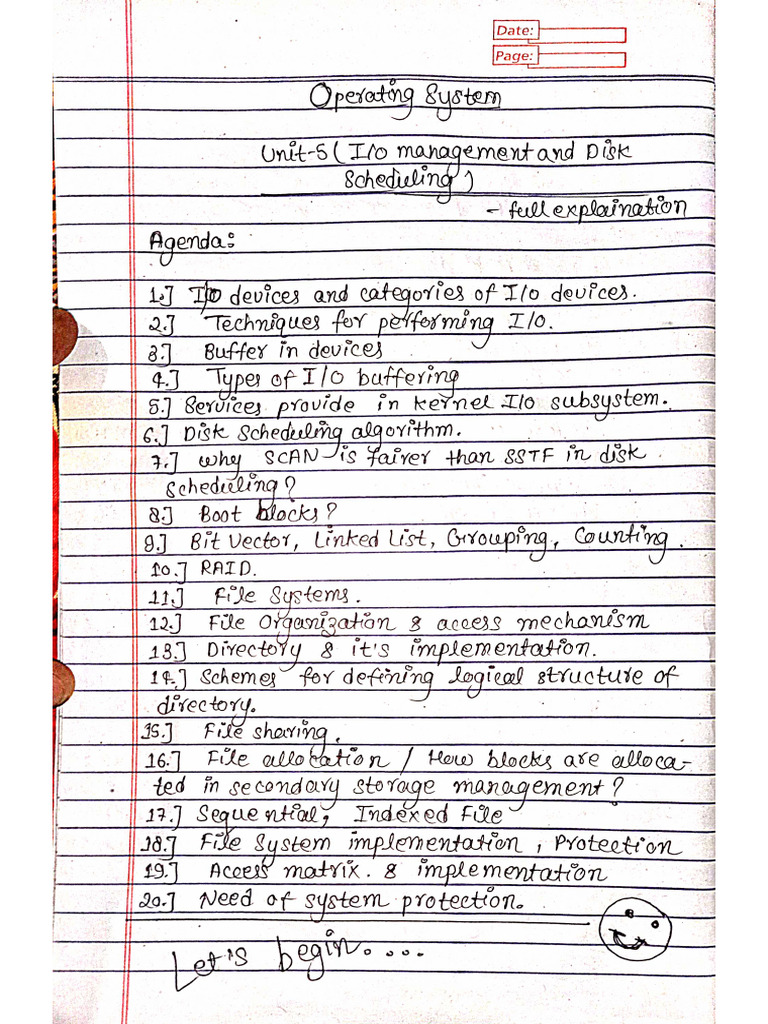 Date:
Page:
Operating System
Unit-5 ( I/O management and Disk
Scheduling )
- full explaination
Agenda:
1.] I/O devices and categories of I/O devices.
2.] Techniques for performing I/O.
3.] Buffer in devices
4.] Types of I/O buffering
5.] Services provide in kernel I/O subsystem.
6.] Disk scheduling algorithm.
7.] why SCAN is fairer than SSTF in disk
scheduling?
8.] Boot blocks?
9.] Bit Vector, Linked List, Grouping, Counting.
10.] RAID.
11.] File Systems.
12.] File Organization & access mechanism
13.] Directory & it's implementation.
14.] Schemes for defining logical structure of
directory.
15.] File sharing.
16.] File allocation / How blocks are alloca-
ted in secondary storage management?
17.] Sequential, Indexed File
18.] File System implementation, Protection
19.] Access matrix. & implementation
20.] Need of system protection.
Let's begin.....